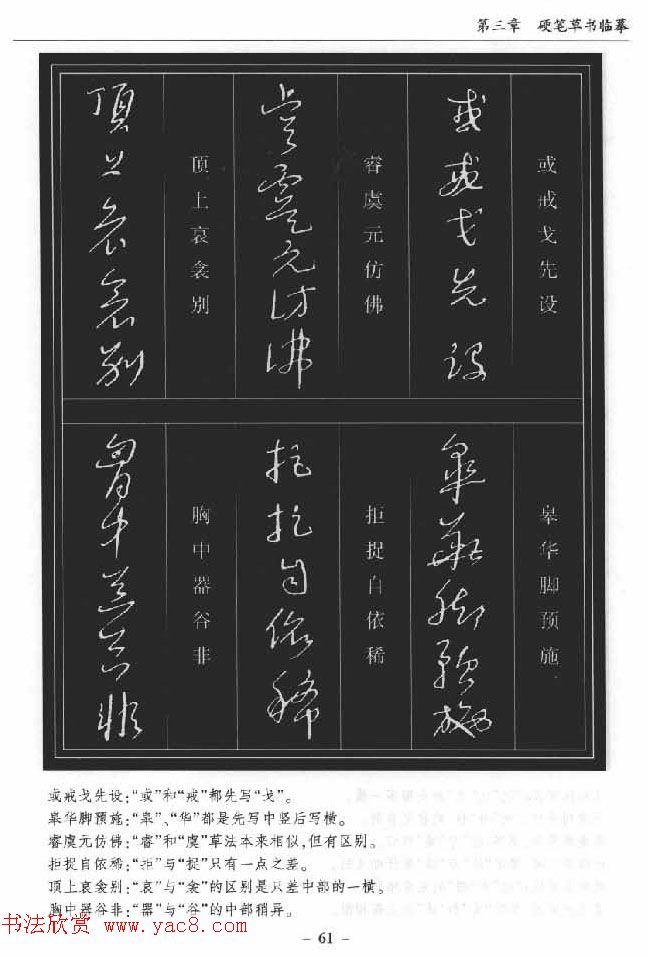 第三章 硬笔草书临摹
或戒戈先设
或戒戈先設
睿虞元仿佛
睿虞元仿佛
顶上哀衾别
頂上哀衾别
皋华脚预施
皋華脚預施
拒捉自依稀
拒捉自依稀
胸中器谷非
胸中器谷非
或戒戈先设:“或”和“戒”都先写“戈”。
皋华脚预施:“皋”、“华”都是先写中竖后写横。
睿虞元仿佛:“睿”和“虞”草法本来相似,但有区别。
拒捉自依稀:“拒”与“捉”只有一点之差。
顶上哀衾别:“哀”与“衾”的区别是只差中部的一横。
胸中器谷非:“器”与“谷”的中部稍异。
书法欣赏 www.yac8.com
- 61 -